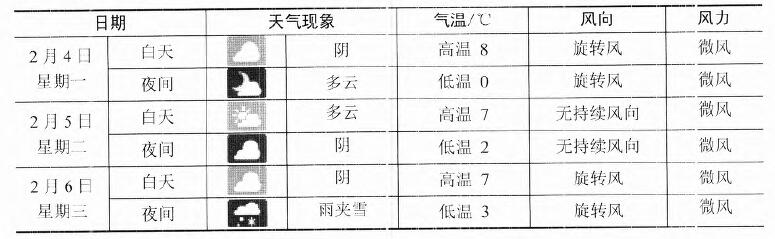 日期 天气现象 气温/℃ 风向 风力
2月4日 星期一 白天 阴 高温 8 旋转风 微风
夜间 多云 低温 0 旋转风 微风
2月5日 星期二 白天 多云 高温 7 无持续风向 微风
夜间 阴 低温 2 无持续风向 微风
2月6日 星期三 白天 阴 高温 7 旋转风 微风
夜间 雨夹雪 低温 3 旋转风 微风